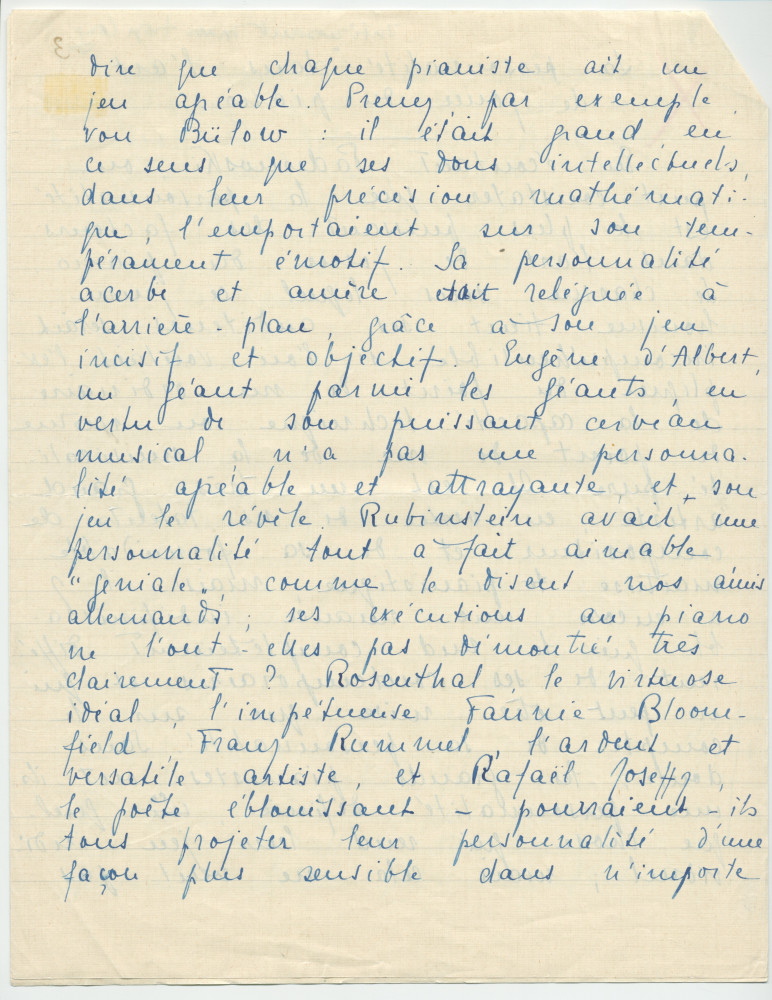 3
dire que chaque pianiste ait un
jeu agréable. Prenez, par exemple
von Bülow : il était grand en
ce sens que ses dons intellectuels,
dans leur précision mathémati-
que, l'emportaient sur son tem-
pérament émotif. Sa personnalité
acerbe et amère était reléguée à
l'arrière-plan, grâce à son jeu
incisif et objectif. Eugène d'Albert,
un géant parmi les géants, en
vertu de son puissant cerveau
musical, n'a pas une personna-
lité agréable et attrayante, et son
jeu le révèle. Rubinstein avait une
personnalité tout à fait aimable
"geniale" comme le disent nos amis
allemands ; ses exécutions au piano
ne l'ont-elles pas démontré très
clairement ? Rosenthal, le virtuose
idéal, l'impétueuse Fannie Bloom-
field, Franz Rummel, l'ardent et
versatile artiste, et Rafaël Joseffy,
le poète éblouissant - pourraient-ils
tous projeter leur personnalité d'une
façon plus sensible dans n'importe